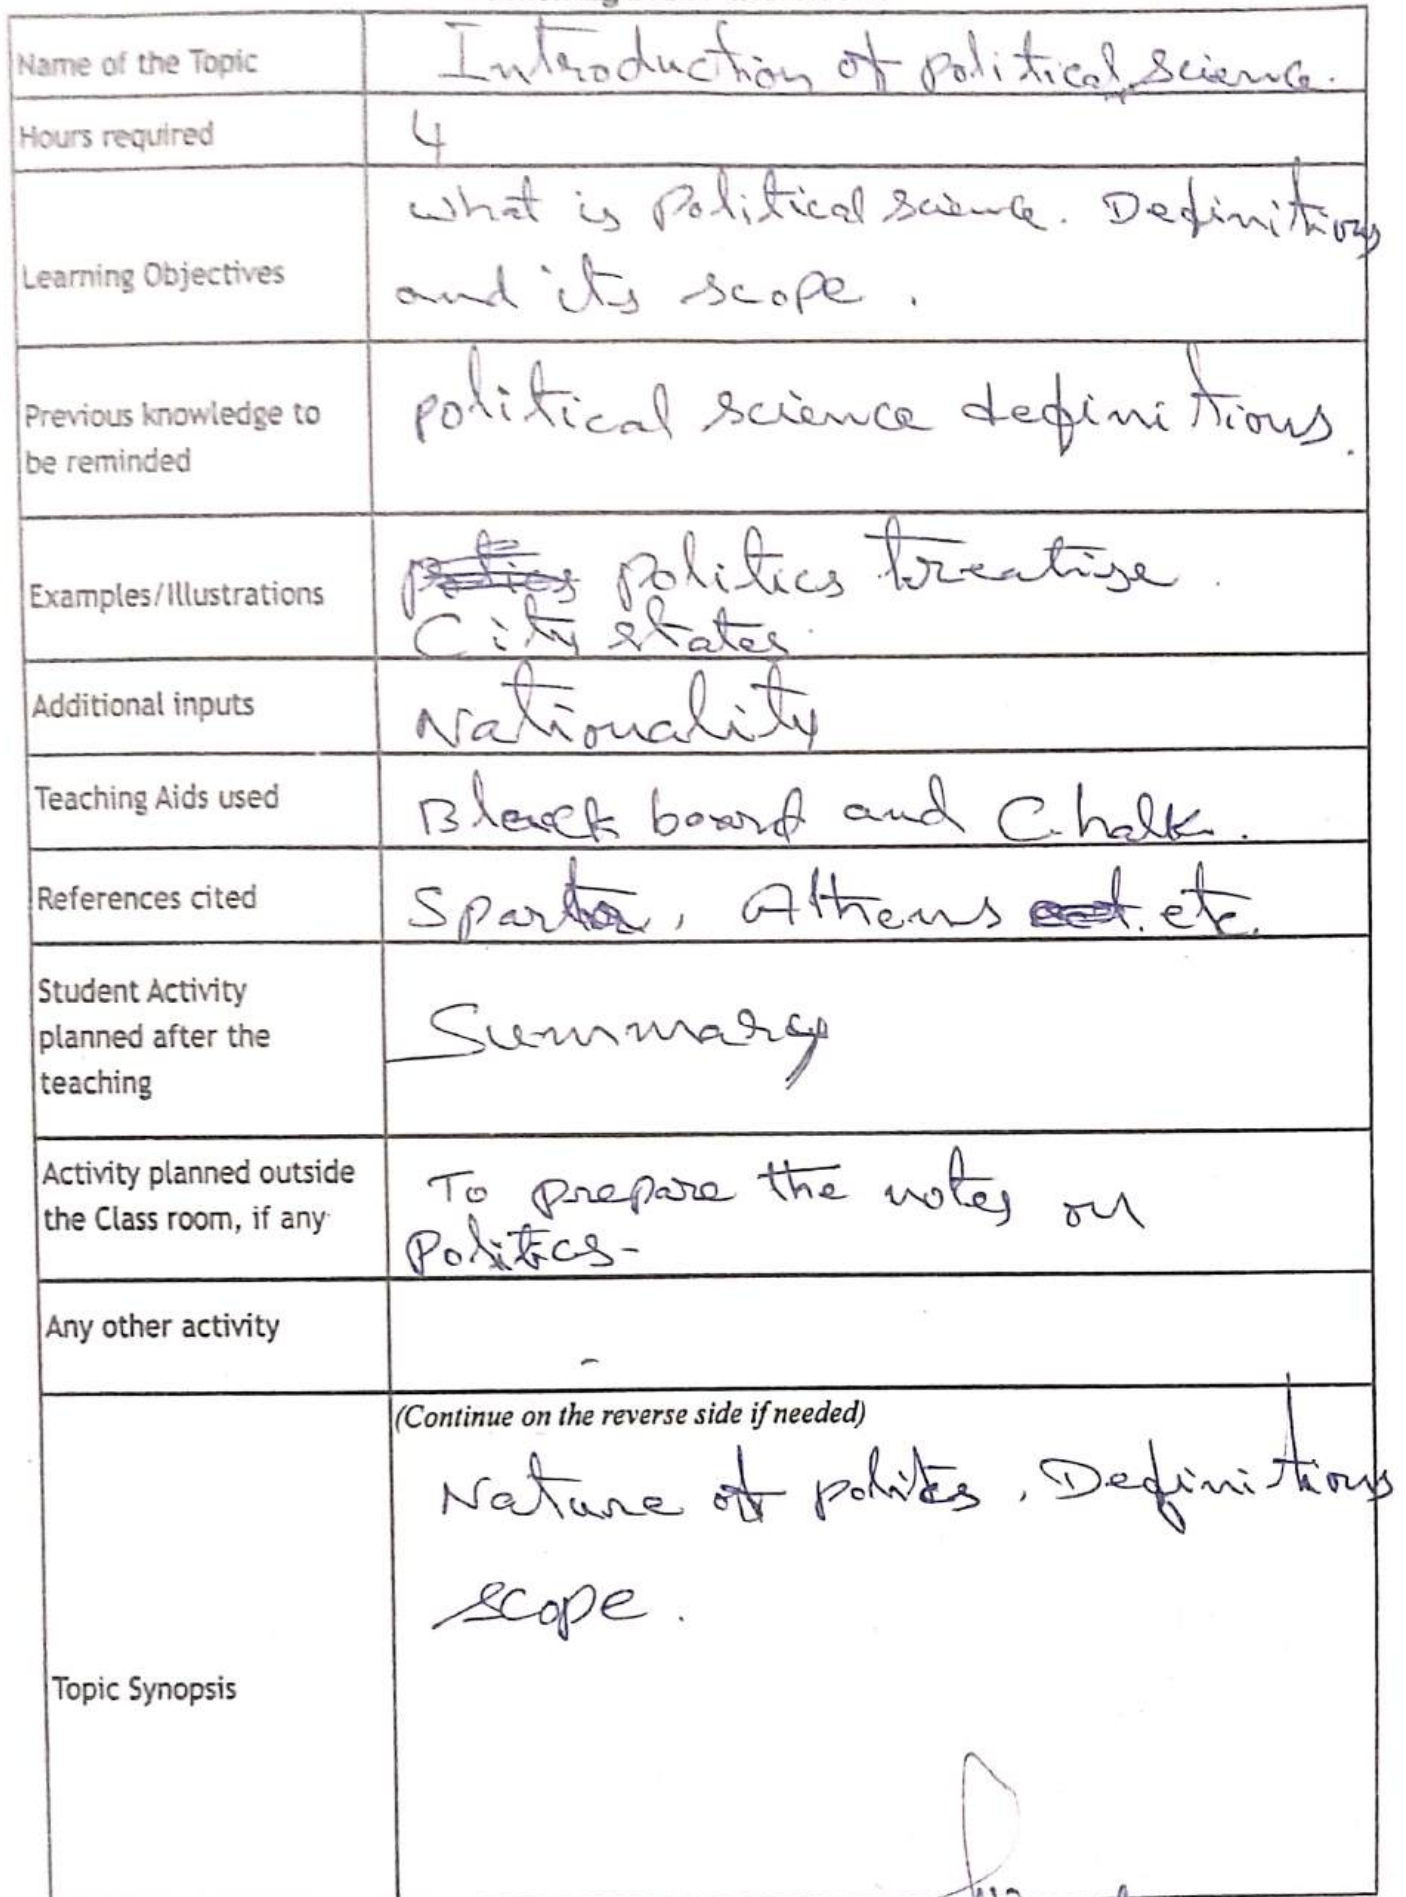 Name of the Topic
Introduction of political science.
Hours required
4
Learning Objectives
what is political science. Definitions
and its scope.
Previous knowledge to
be reminded
political science definitions.
Examples/Illustrations
politics treatise.
City states.
Additional inputs
Nationality
Teaching Aids used
Black board and Chalk.
References cited
Sparta, Athens etc.
Student Activity
planned after the
teaching
Summary
Activity planned outside
the Class room, if any
To prepare the notes on
Politics-
Any other activity
-
(Continue on the reverse side if needed)
Nature of polites, Definitions
scope.
Topic Synopsis